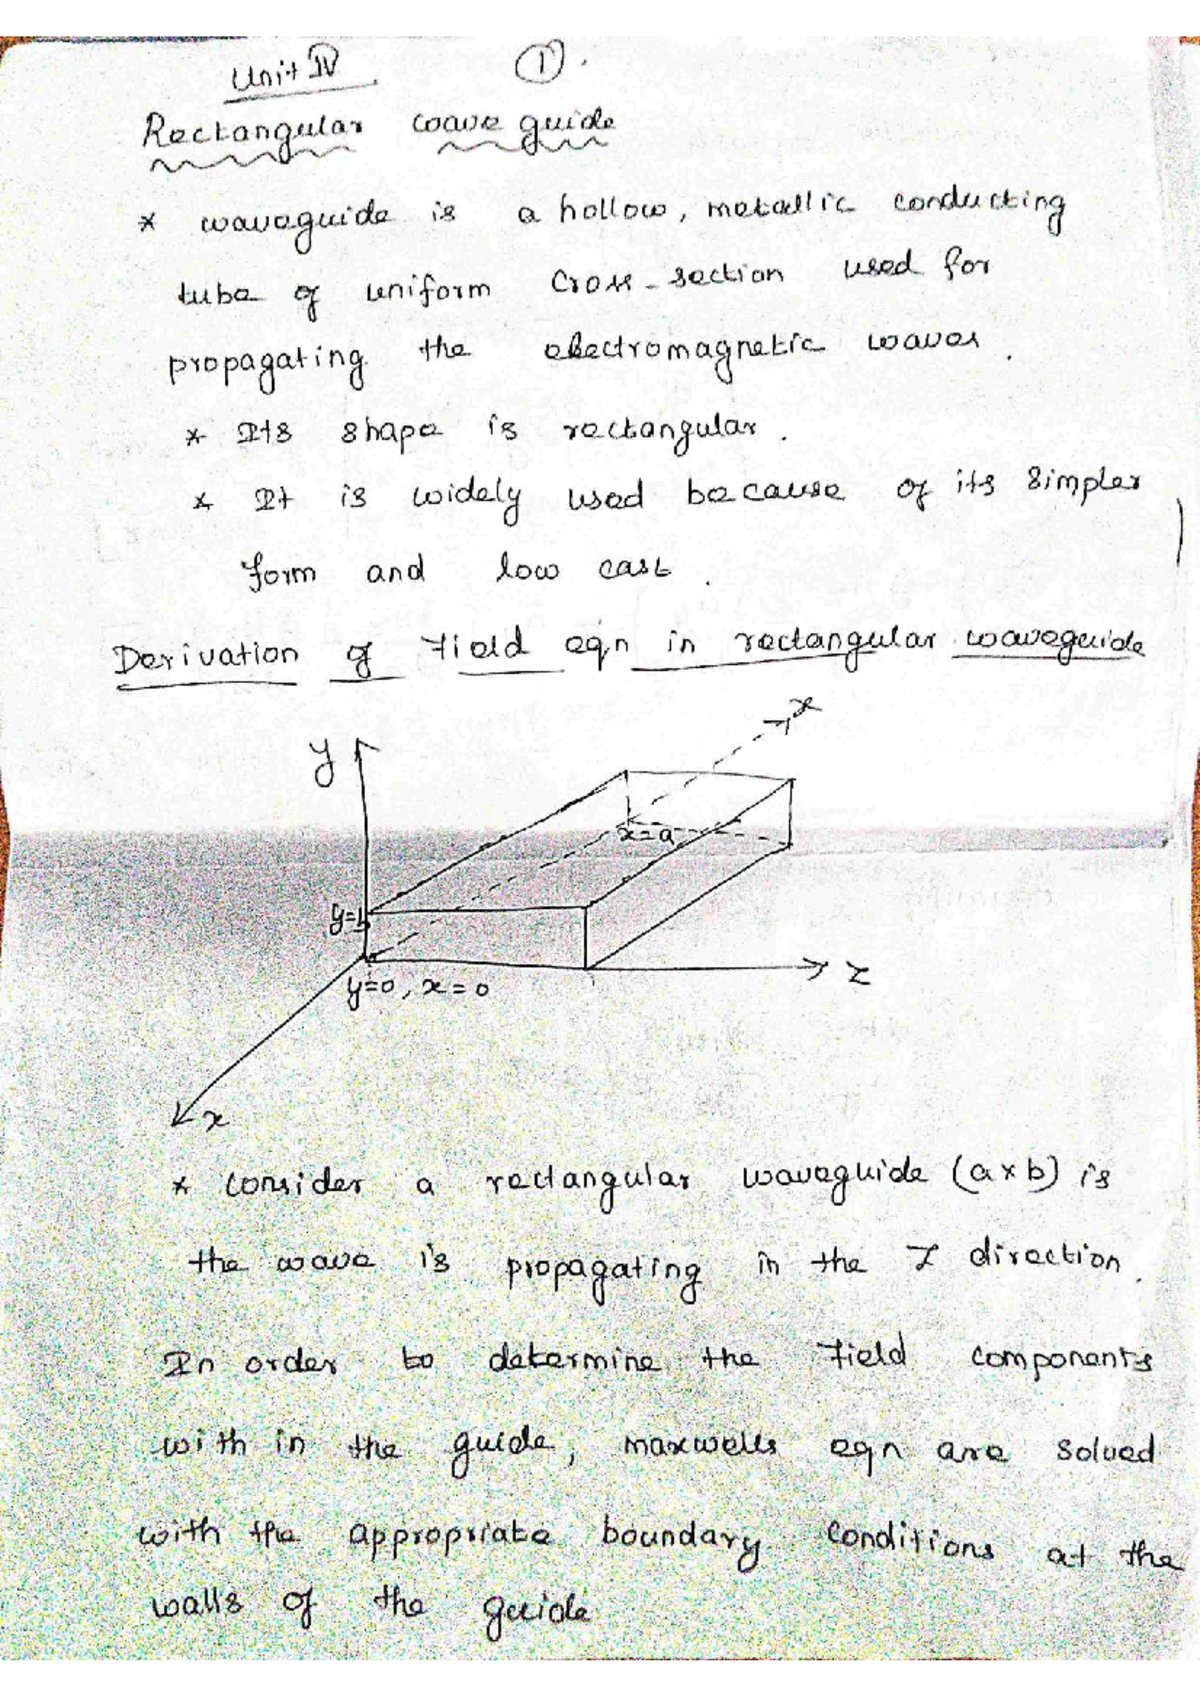 Unit IV
1
Rectangular wave guide
* waveguide is a hollow, metallic conducting
tube of uniform cross-section used for
propagating the electromagnetic waves.
* Its shape is rectangular.
* It is widely used because of its simpler
form and low cast.
Derivation of Field eqn in rectangular waveguide
x
y
x=a
y=b
z
y=0, x=0
x
* consider a rectangular waveguide (a×b) is
the wave is propagating in the Z direction.
In order to determine the Field components
with in the guide, maxwells eqn are solved
with the appropriate boundary conditions at the
walls of the guide